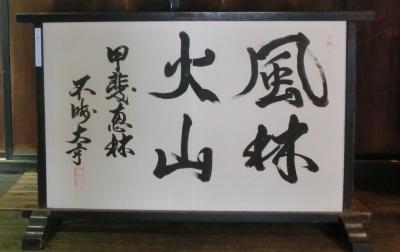 風林
火山
甲斐恵林
不晦大宇